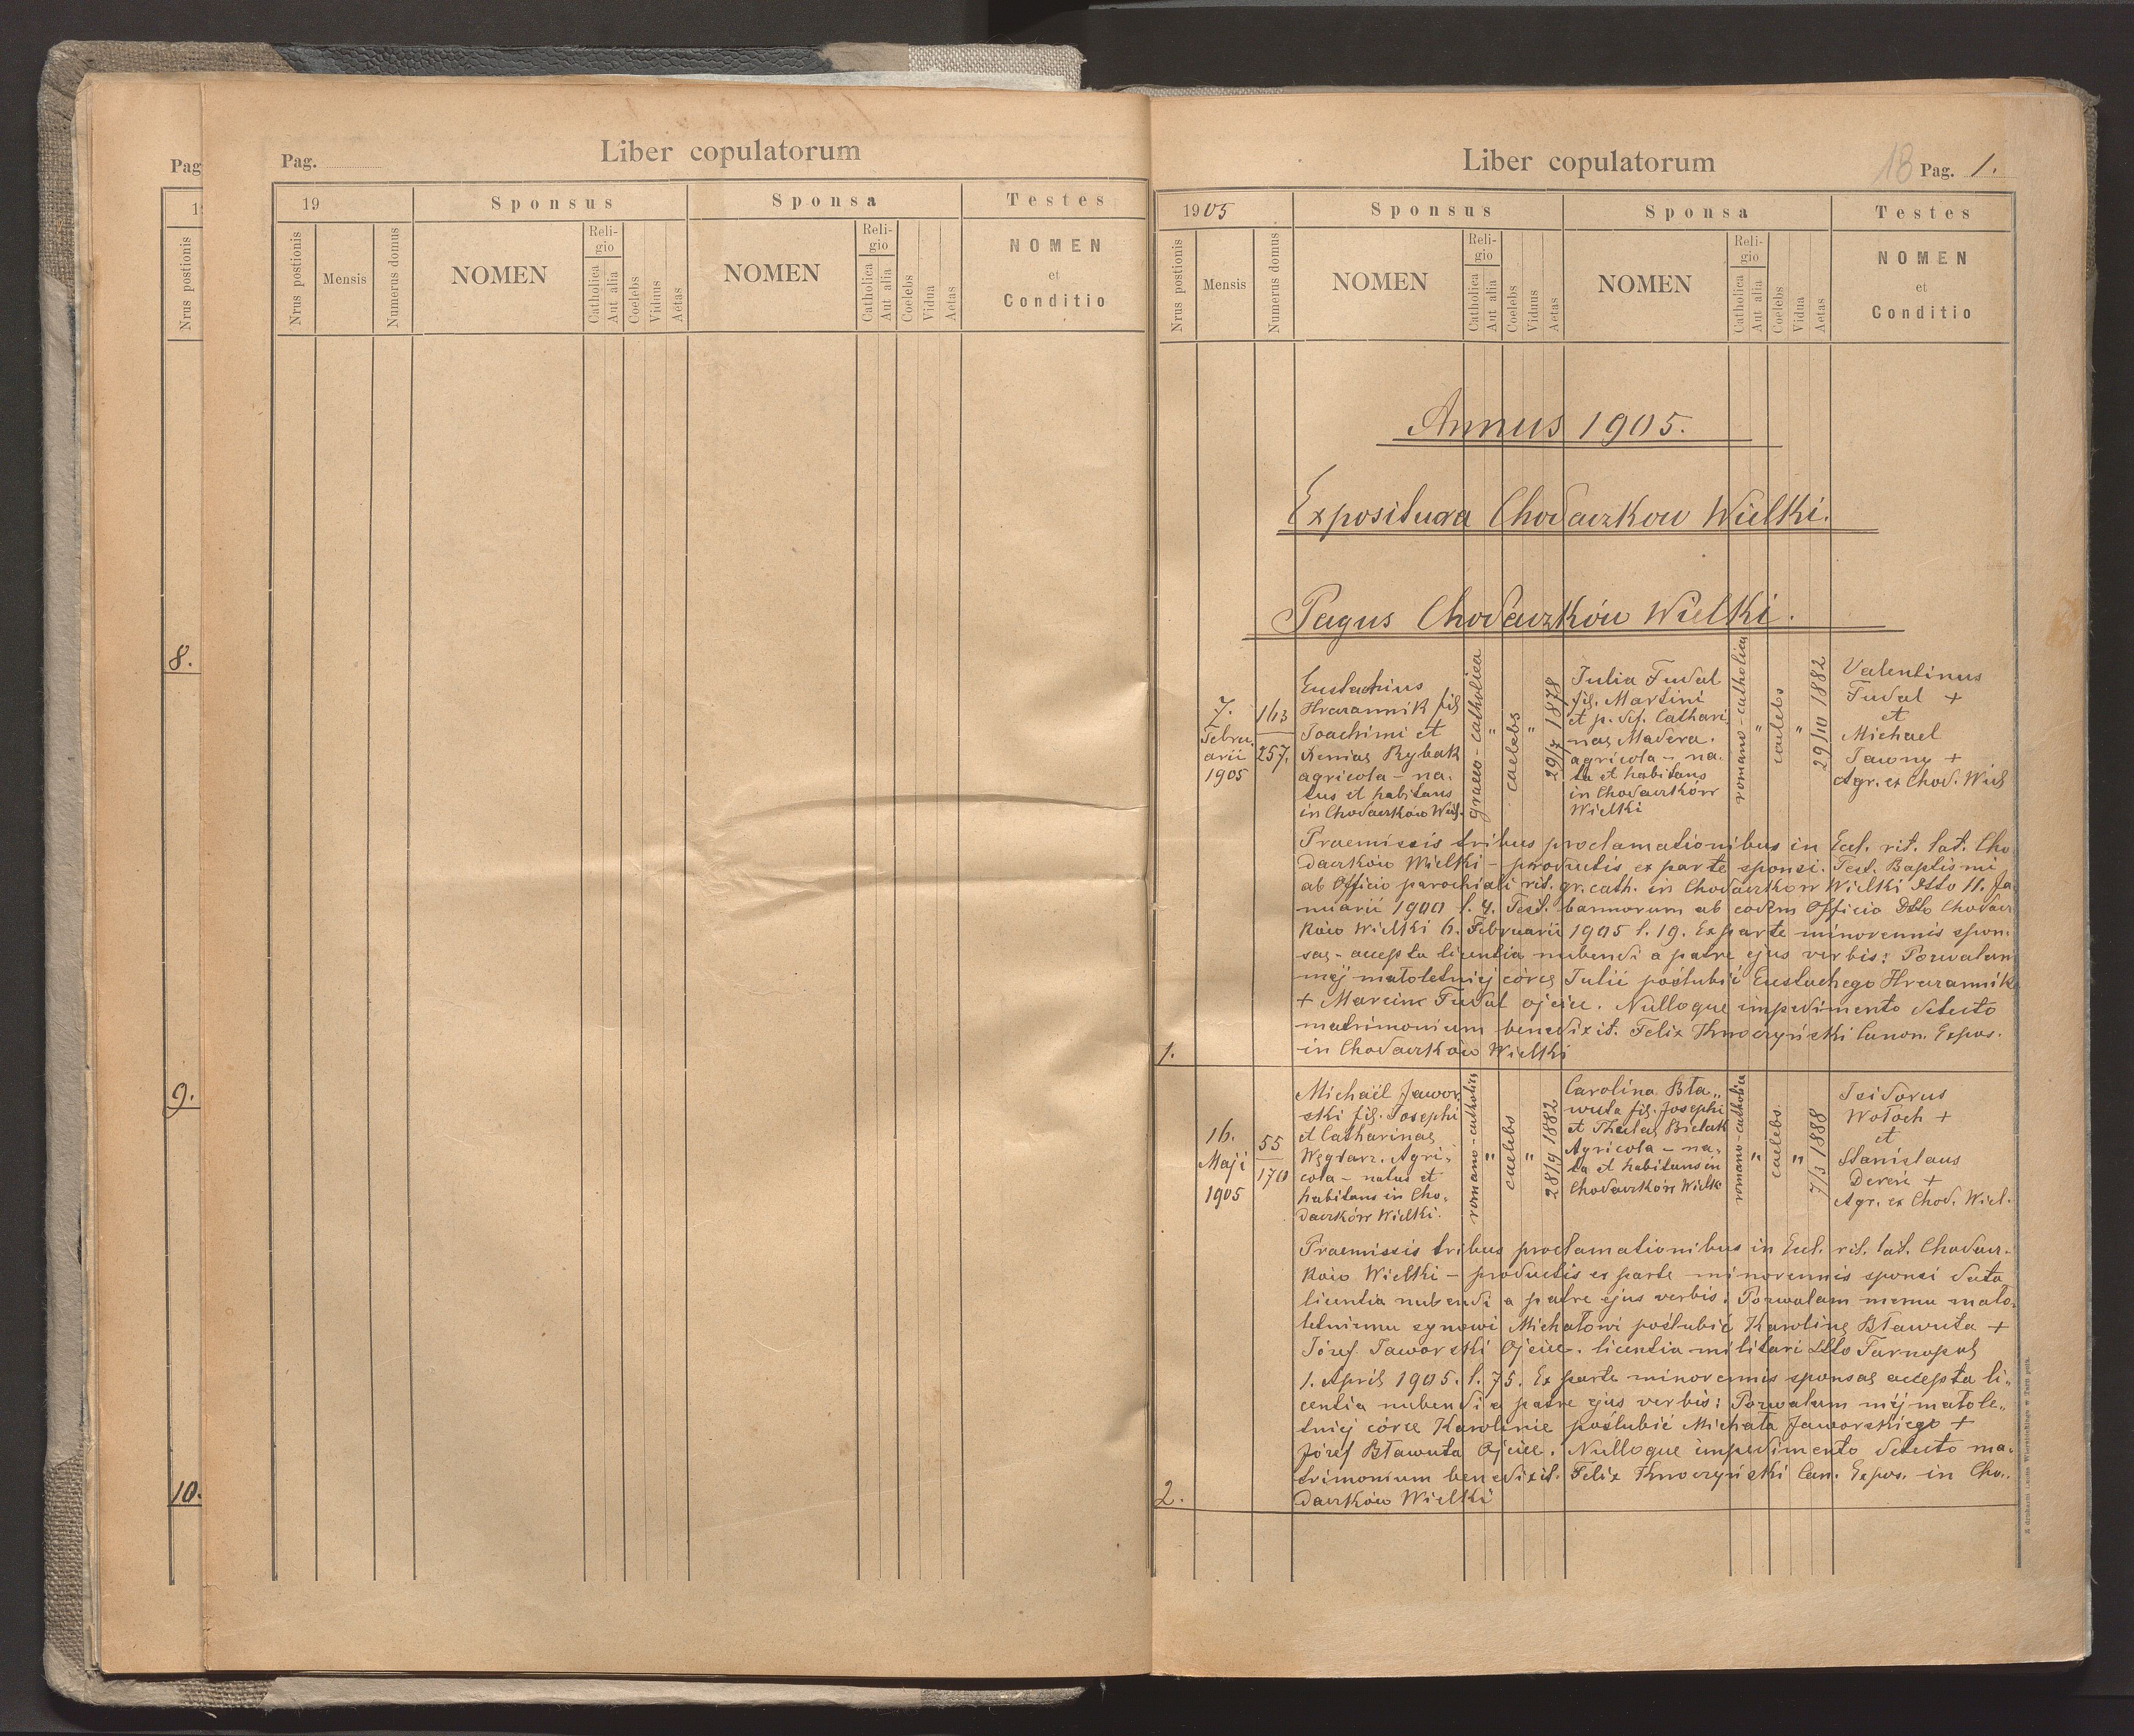 Pag
19
Nrus postionis
8.
9.
10.
Pag.
Liber copulatorum
19
Sponsus
Sponsa
Testes
Nrus postionis
Mensis
Numerus domus
NOMEN
Reli-
gio
Catholica
Aut alia
Coelebs
Viduus
Aetas
NOMEN
Reli-
gio
Catholica
Aut alia
Coelebs
Vidua
Aetas
NOMEN
et
Conditio
Liber copulatorum
18 Pag. 1.
1905
Sponsus
Sponsa
Testes
Nrus postionis
Mensis
Numerus domus
NOMEN
Reli-
gio
Catholica
Aut alia
Coelebs
Viduus
Aetas
NOMEN
Reli-
gio
Catholica
Aut alia
Coelebs
Vidua
Aetas
NOMEN
et
Conditio
Annus 1905.
Expositura Chodaczkow Wielki.
Pagus Chodaczków Wielki.
1.
7.
Febru-
arii
1905
163
257.
Eustachius
Hrarannik fil
Joachimi et
Xenias Rybak
agricola – na-
tus et habitans
in Chodaczków Wiel.
graeco-catholica
"
caelebs
"
29/7 1878
Julia Fudal
fil. Martini
et p. def. Cathari
nas Madera.
agricola – na-
ta et habitans
in Chodaczków
Wielki
romano-catholica
"
caelebs
"
29/III 1882
Valentinus
Fudal +
et
Michael
Jawny +
Agr. ex Chod. Wiel
Praemissis tribus proclamationibus in Eccl. rit. lat. Cho
daczków Wielki – productis ex parte sponsi. Test. Baptismi
ab Officio parochiali rit. gr. cath. in Chodaczków Wielki ddto 11. Ja
nuarii 1900 l. 4. Test. bannorum ab eodem Officio ddto Chodacz
ków Wielki 6. Februarii 1905 l. 19. Ex parte minorennis spon-
sae – accepta licentia nubendi a patre ejus verbis: Pozwalam
mej małoletniej córce Julii poślubić Eustachego Hrarannik
+ Marcin Fudal ojciec. Nulloque impedimento detecto
matrimonium benedixit. Felix Kmoczyński Canon. Expos.
in Chodaczków Wielki
2.
16.
Maji
1905
55
170
Michaël Jawor
ski fil. Josephi
et Catharinae
Węglarz. Agri-
cola – natus et
habitans in Cho-
daczków Wielki.
romano-catholica
"
caelebs
"
28/9 1882
Carolina Bła-
wuta fil. Josephi
et Theclae Bielak
Agricola – na-
ta et habitans in
Chodaczków Wielk
romano-catholica
"
caelebs
"
7/3 1888
Isidorus
Wołoch +
et
Stanislaus
Dereń +
Agr. ex Chod. Wiel.
Praemissis tribus proclamationibus in Eccl. rit. lat. Chodacz-
ków Wielki – productis ex parte minorennis sponsi data
licentia nubendi a patre ejus verbis: Pozwalam memu mało-
letniemu synowi Michałowi poślubić Karolinę Bławuta +
Józef Jaworski Ojciec. licentia militari ddto Tarnopol
1. April 1905. l. 75. Ex parte minorennis sponsae accepta li-
centia nubendi a patre ejus verbis: Pozwalam mej małole-
tniej córce Karolinie poślubić Michała Jaworskiego +
Józef Bławuta Ojciec. Nulloque impedimento detecto ma-
trimonium benedixit. Felix Kmoczyński Can. Expos. in Cho-
daczków Wielki